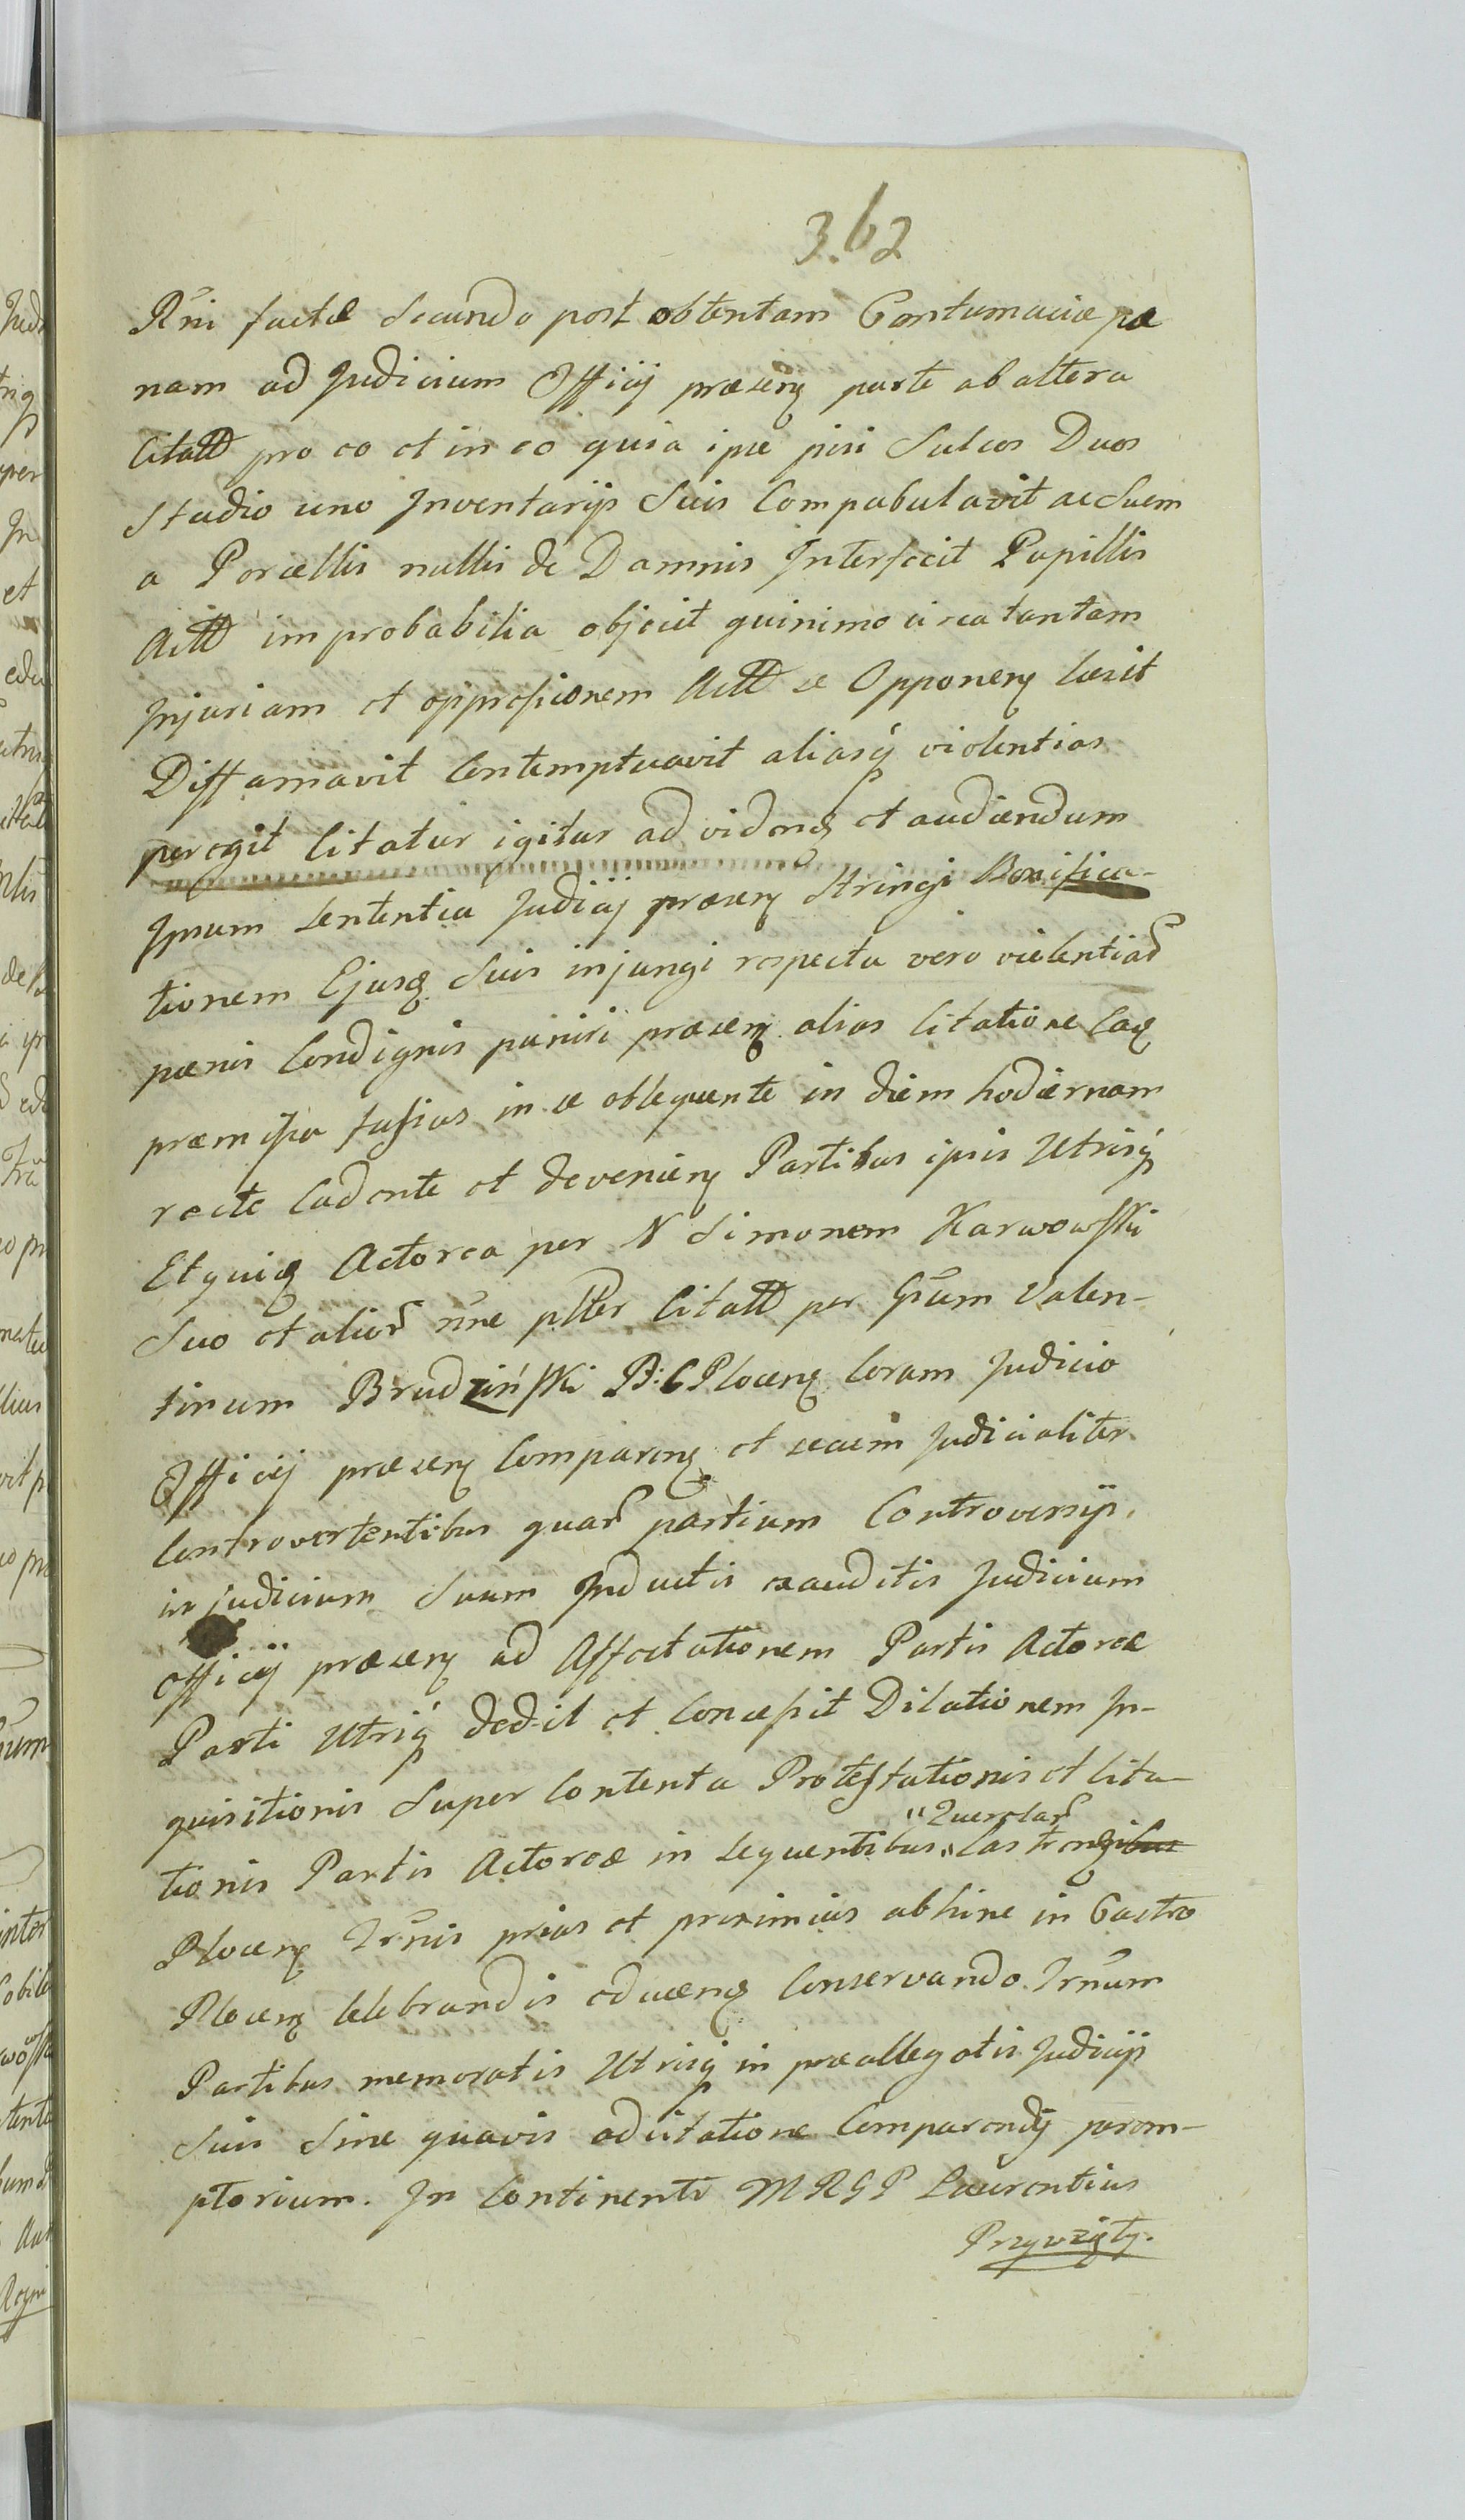 362
Rn̄i factæ Secundo post obtentam Contumaciæ pæ
nam ad Judicium Officij præseng parte ab altera
Citatt pro eo et in eo quia ipse pisi Sulcos Duos
Studio uno Inventarijs Suis Compabulavit ac Suem
a Porcellis nullis de Damnis Interfecit Pupillis
Actt improbabilia objecit quinimo circa tantam
Injuriam et oppressionem Actt se Opponeng læsit
Diffamavit Contemptuavit aliasq violentias
peregit Citatur igitur ad vidend et audiendum
Ipsum sententia Judicij præseng Stringi Bonifica-
tionem Ejusq Suis injungi respectu vero violentiar
pænis Condignis puniri præseng alias Citatione Eaq
præmissa fusius in se obloquente in diem hodiernam
recte Cadente et devenieng Partibus ipsis Utrisq
Et quidg Actorea per N Simonem Karwowski
Suo et alior nn̄e ptter Citatt per Gn̄um Valen-
tinum Brudziński B: C Ploceng Coram Judicio
Officij præseng Compareng et secum Judicialiter
Controvertentibus quar partium Controversijs
in Judicium Suum Inductis exauditis Judicium
Officij præseng ad Affectationem Partis Actoreæ
Parti Utriq dedit et Concessit Dilationem In-
quisitionis Super Contenta Protestationis et Cita-
"Querelar
tionis Partis Actoreæ in sequentibus " Castrengibus
Ploceng Trn̄is prius et proximius abhinc in Castro
Ploceng Celebrandis educeng Conservando Trn̄um
Partibus memoratis Utrisq in præallegatis Judicijs
Suis Sine quavis adcitatione Comparendi perem-
ptorium. In Continenti MRGP Laurentius
Przywzięty.